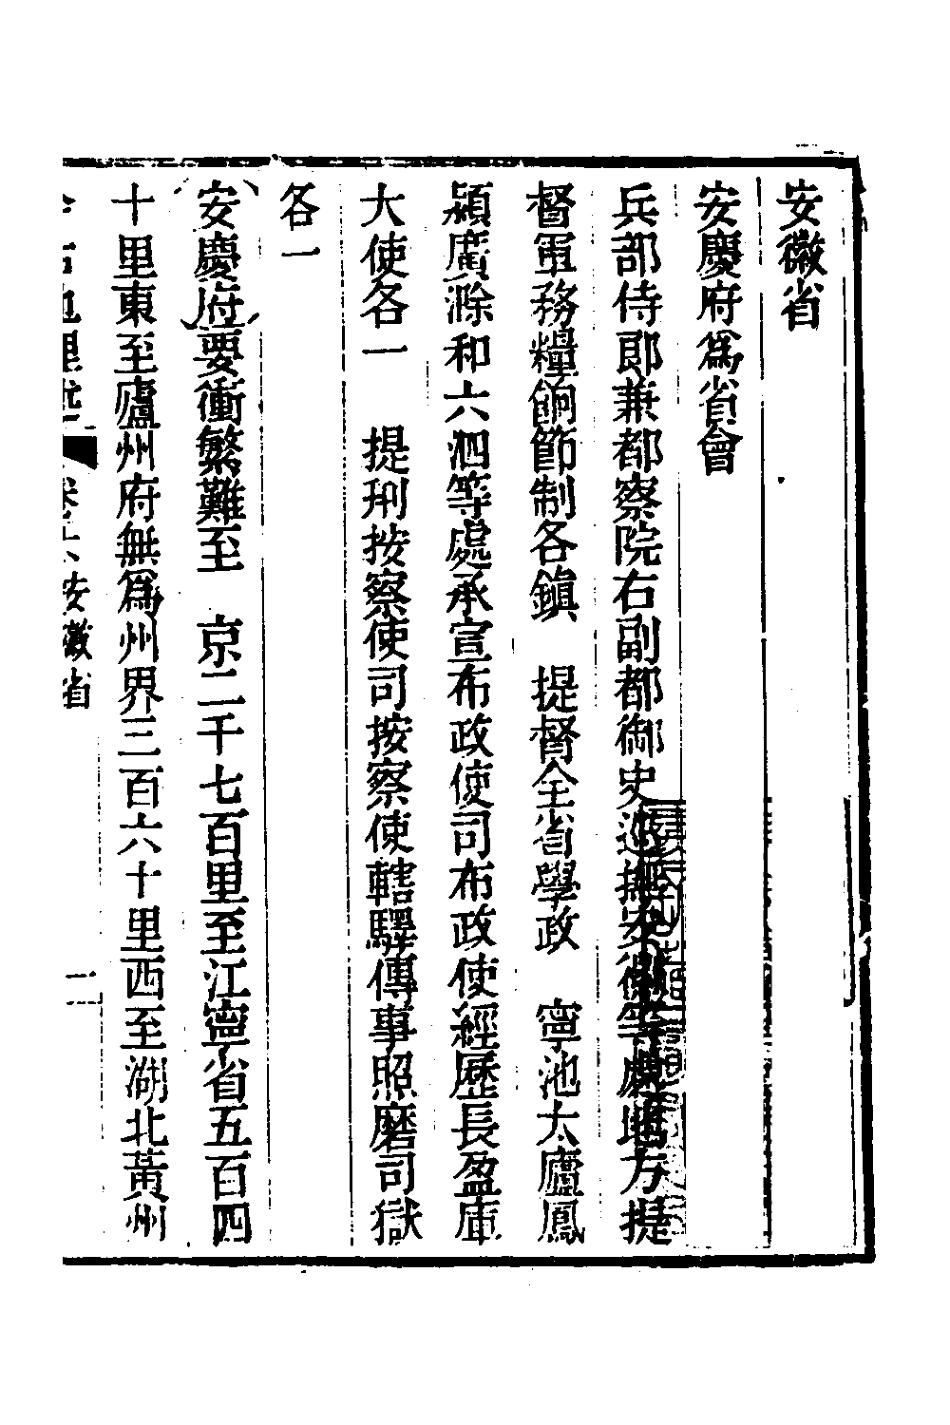 安徽省
安慶府爲省會
兵部侍郎兼都察院右副都御史巡撫安徽等處地方提
督軍務糧餉節制各鎮　提督全省學政　寧池太廬鳳
潁廣滁和六泗等處承宣布政使司布政使經歷長盈庫
大使各一　提刑按察使司按察使轄驛傳事照磨司獄
各一
安慶府要衝繁難至　京二千七百里至江寧省五百四
十里東至廬州府無爲州界三百六十里西至湖北黃州
安徽省　一